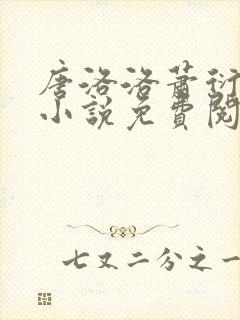 唐洛洛萧衍
小说免费阅
七又二分之一